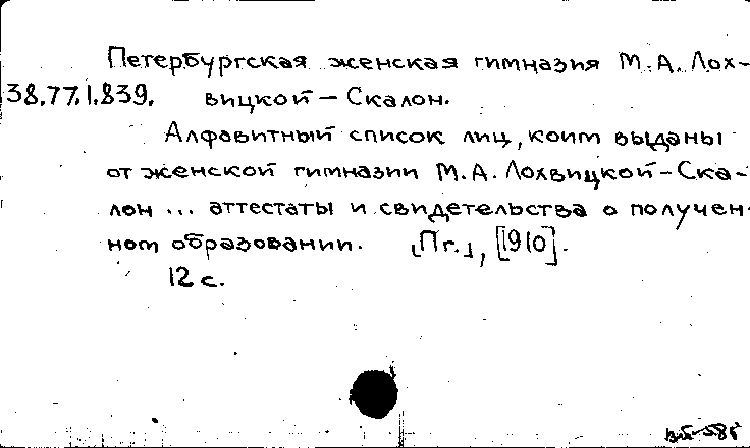 Петербургская женская гимназия М.А. Лох-
38.77.1.839. вицкой – Скалон.
Алфавитный список лиц, коим выданы
от женской гимназии М.А. Лохвицкой – Ска-
лон ... аттестаты и свидетельства о получен-
ном образовании. [Пг.], [1910].
12 с.